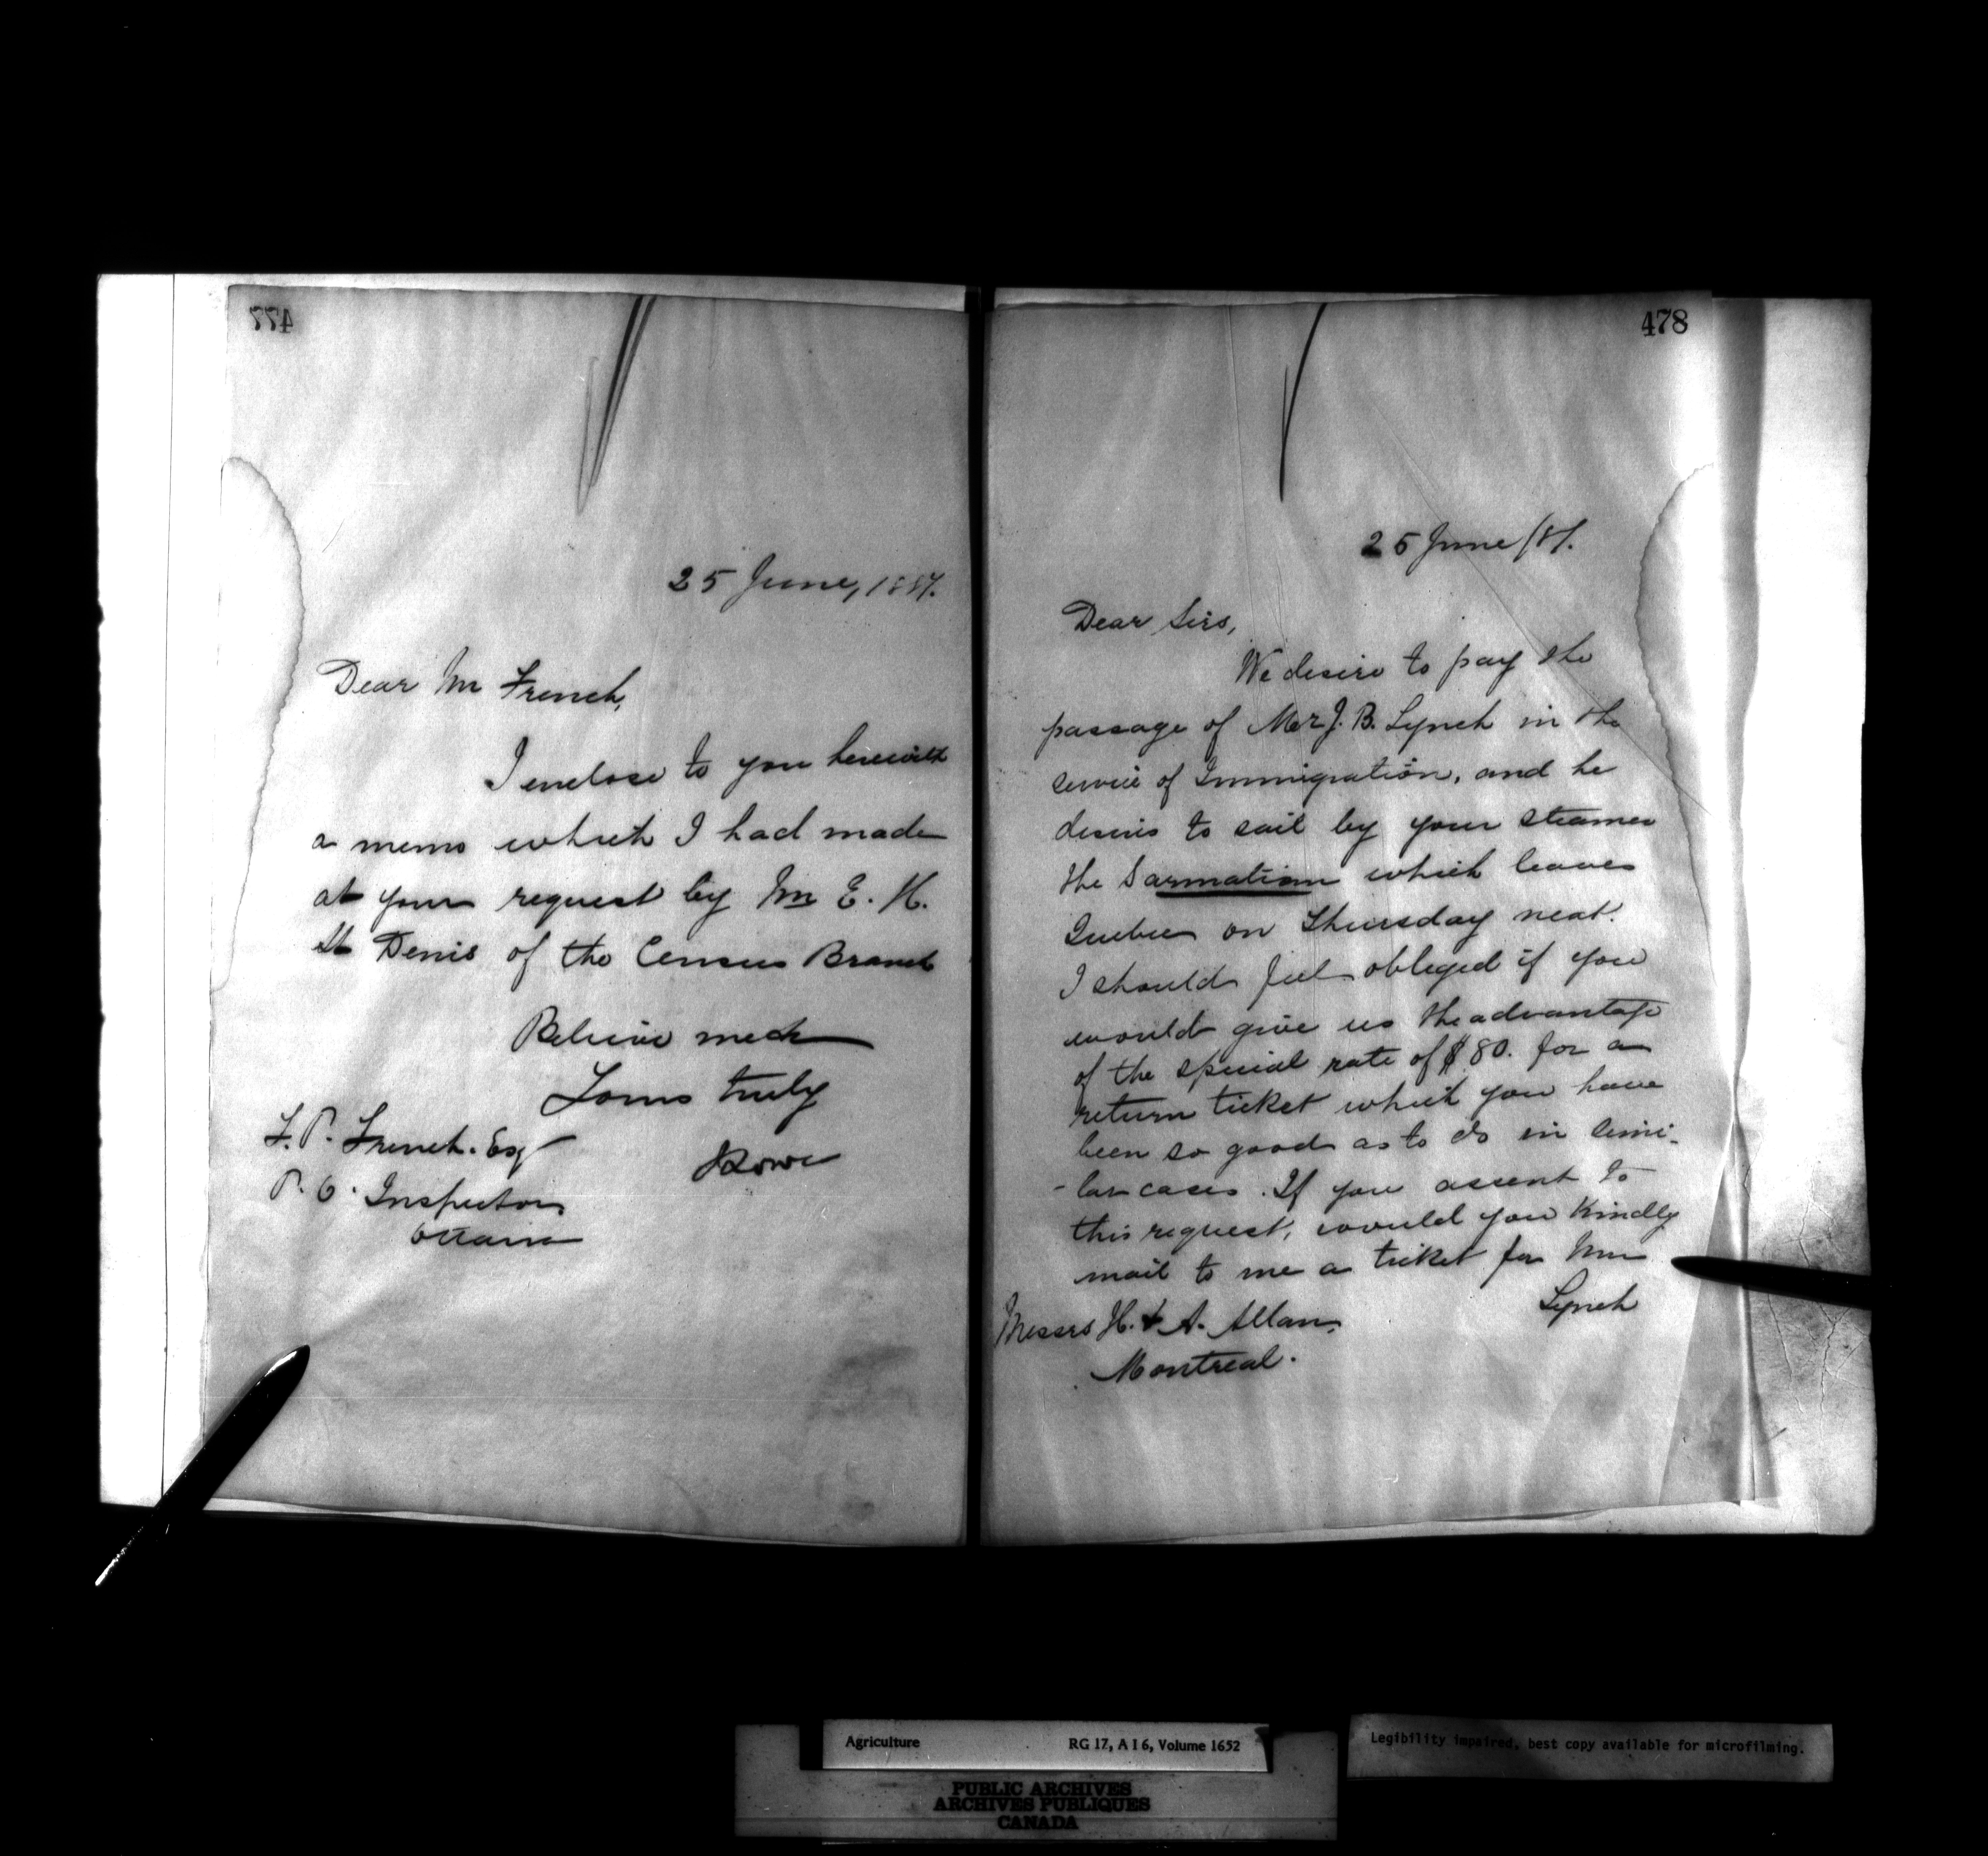 477
25 June, 1887.
Dear Mr French,
I enclose to you herewith
a memo which I had made
at your request by Mr E. H.
St Denis of the Census Branch
Believe me
Yours truly
JLowe
F. P. French. Esq
P. O. Inspector
Ottawa
478
25 June /87.
Dear Sirs,
We desire to pay the
passage of Mr J. B. Lynch in the
service of Immigration, and he
desires to sail by your steamer
the Sarmatian which leaves
Quebec on Thursday next.
I should feel obliged if you
would give us the advantage
of the special rate of $80. for a
return ticket which you have
been so good as to do in simi-
-lar cases. If you assent to
this request, would you kindly
mail to me a ticket for Mr
Lynch
Messrs H. & A. Allan,
Montreal.
Agriculture RG 17, A I 6, Volume 1652
Legibility impaired, best copy available for microfilming.
PUBLIC ARCHIVES
ARCHIVES PUBLIQUES
CANADA